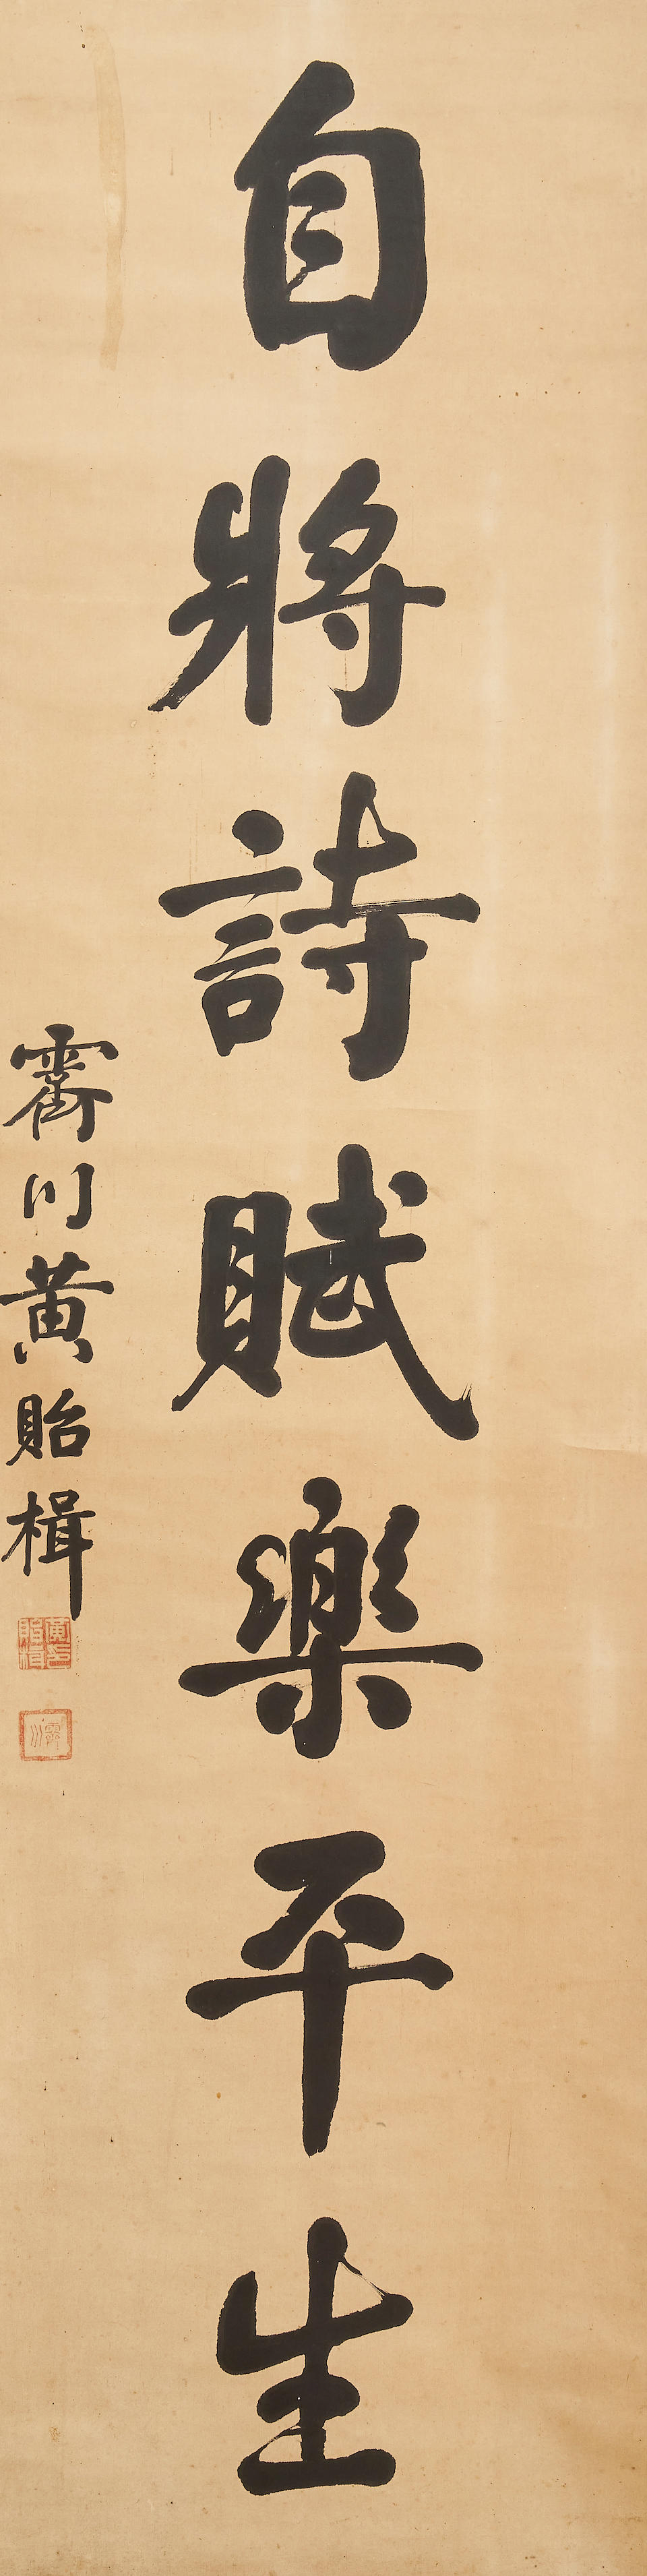 自將詩賦樂平生
霽川黃貽楫
黃印貽楫
霽川